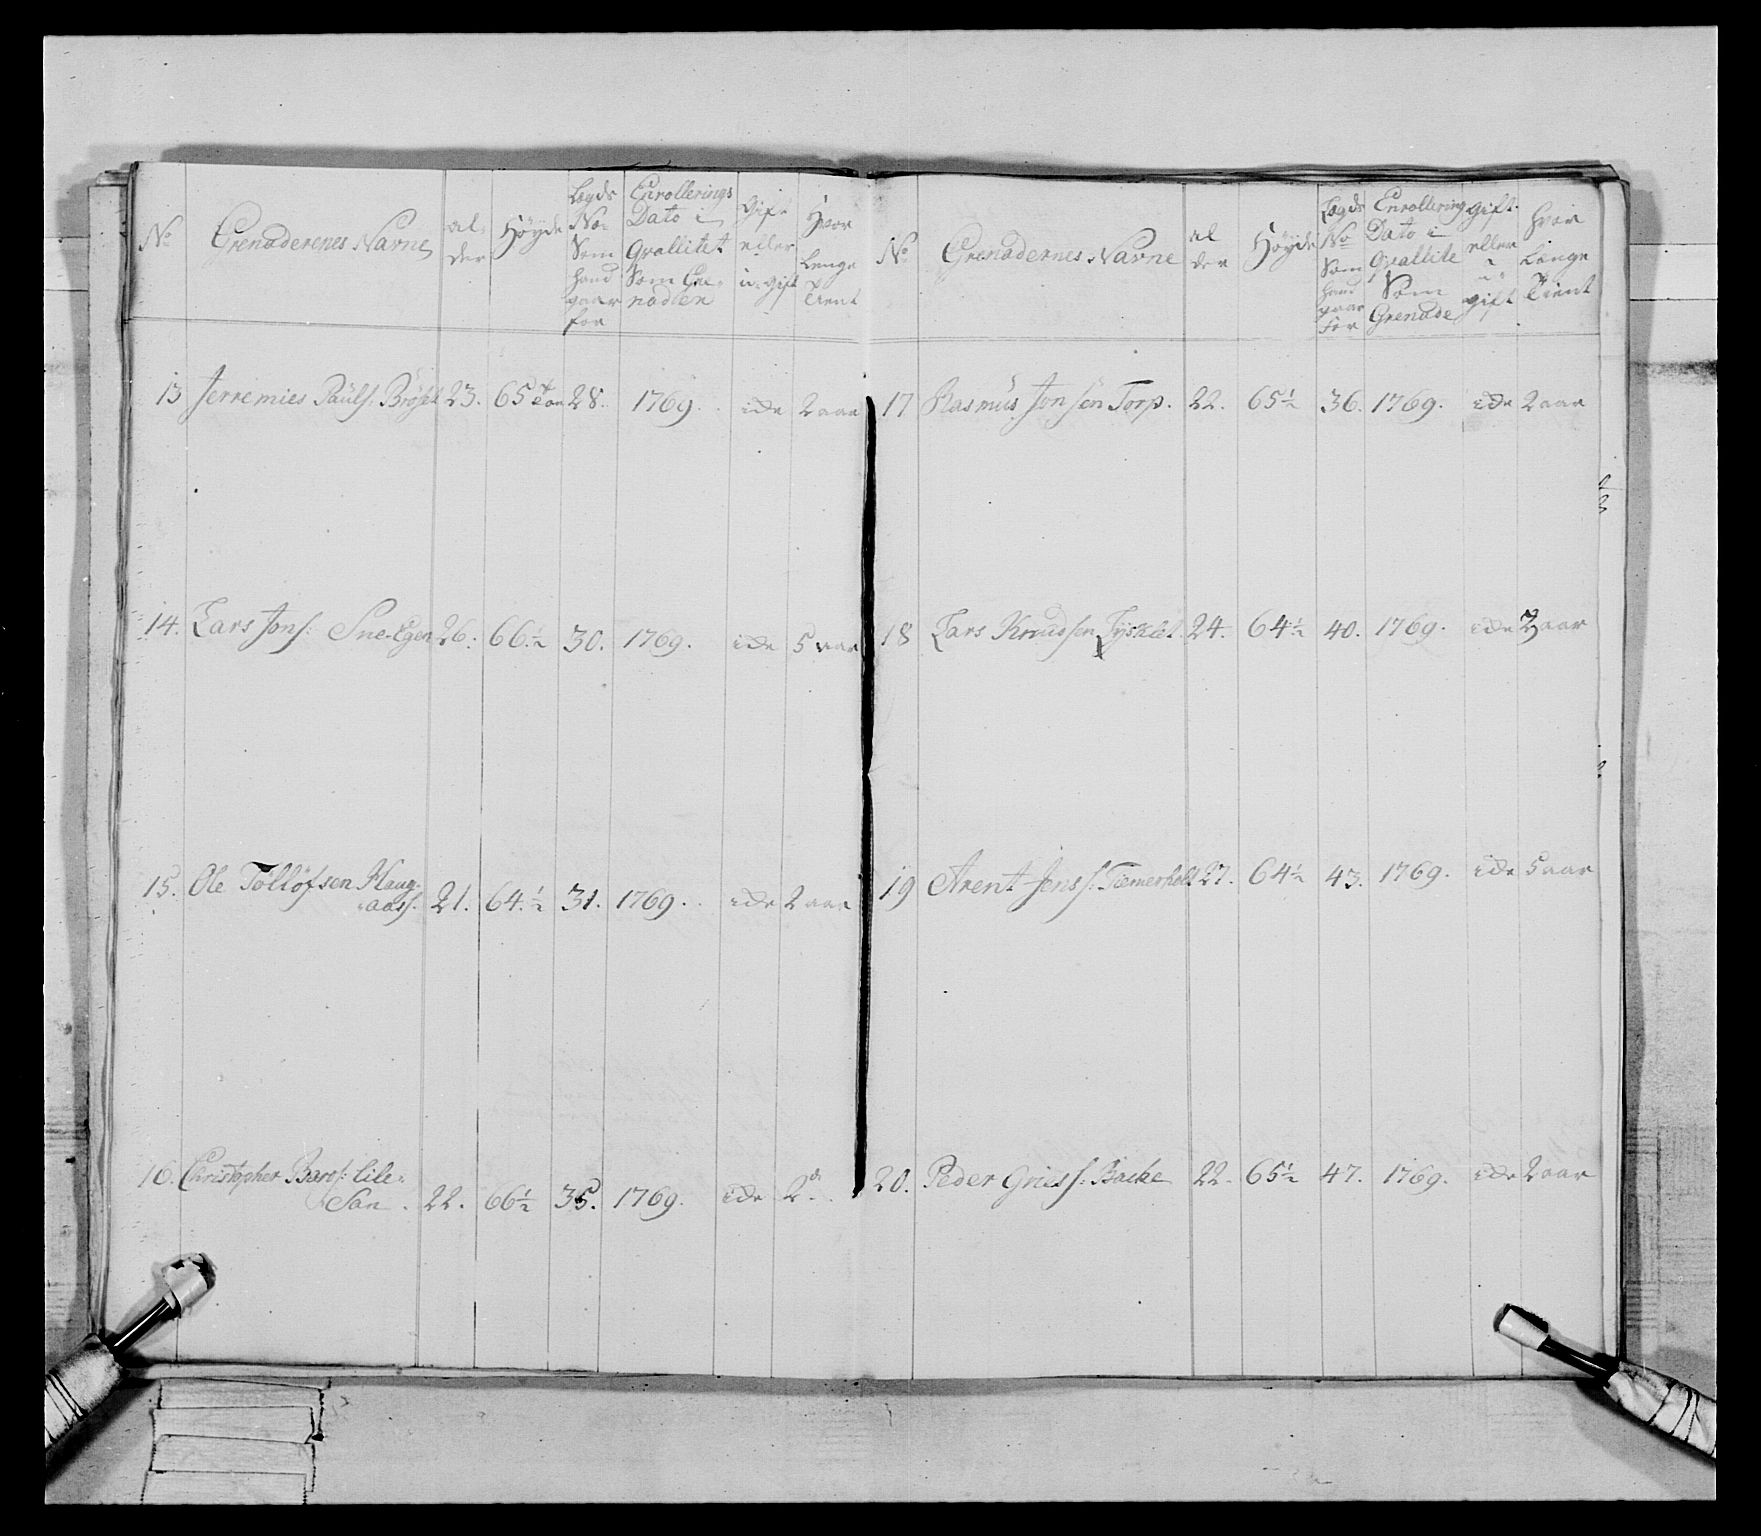 No
Grenaderenes Navne
al-
der
Höyde
Lægds
No
Som
hand
gaar
for
Enrollerings
Dato i
Qvallitet
Som Gre-
nadeer
Gift
eller
u-gift
Hvor
lenge
tient
13 Jerremies Pauls: Brösk 23. 65 28. 1769. ide 2 aar
14. Lars Jons: Sne-Egen 26. 66.½ 30. 1769. ide 5 aar
15. Ole Tollöfsen Haug-
aass. 21. 64.½ 31. 1769. ide 2 aar
16. Christopher Bards: Lile-
San. 22. 66½ 35. 1769. ide 2d.
No
Grenadernes Navne
al
der
Höyde
Lægds
No
Som
hand
gaar
for
Enrollering
Dato i
Qvallite
Som
Grenade
gift
eller
u
gift
hvor
længe
tient
17 Rasmus Jonsen Torp. 22. 65½ 36. 1769. ide 2 aar
18 Lars Knudsen Tysklet 24. 64½ 40. 1769. ide 2 aar
19 Arent Jens s: Tiemerholt 27. 64½ 43. 1769. ide 5 aar
20. Peder Gries s: Backe 22. 65½ 47. 1769. ide 2 aar